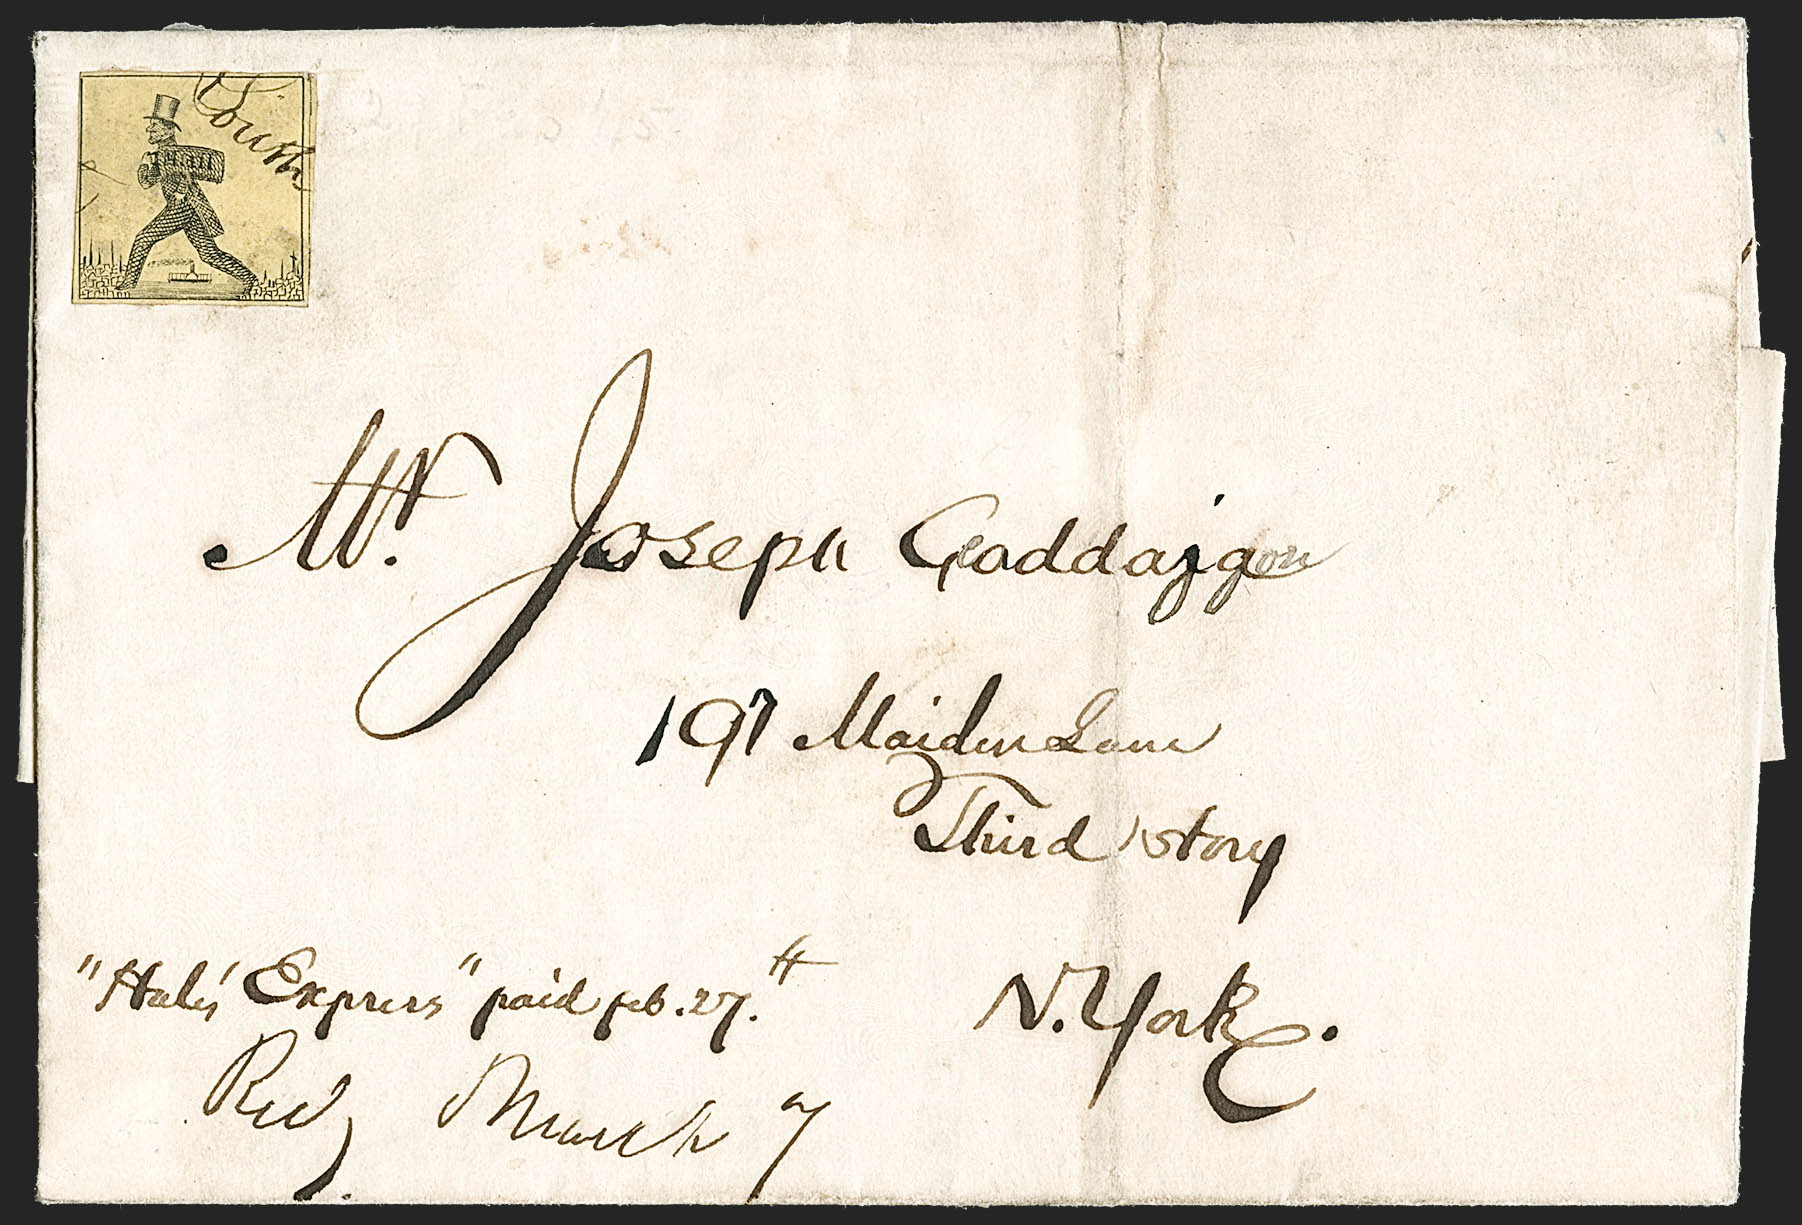 South
Mr. Joseph Gaddajgon
197 Maiden Lane
Third story
"Hales' Express" paid feb. 27.
N. York.
Recd March 7